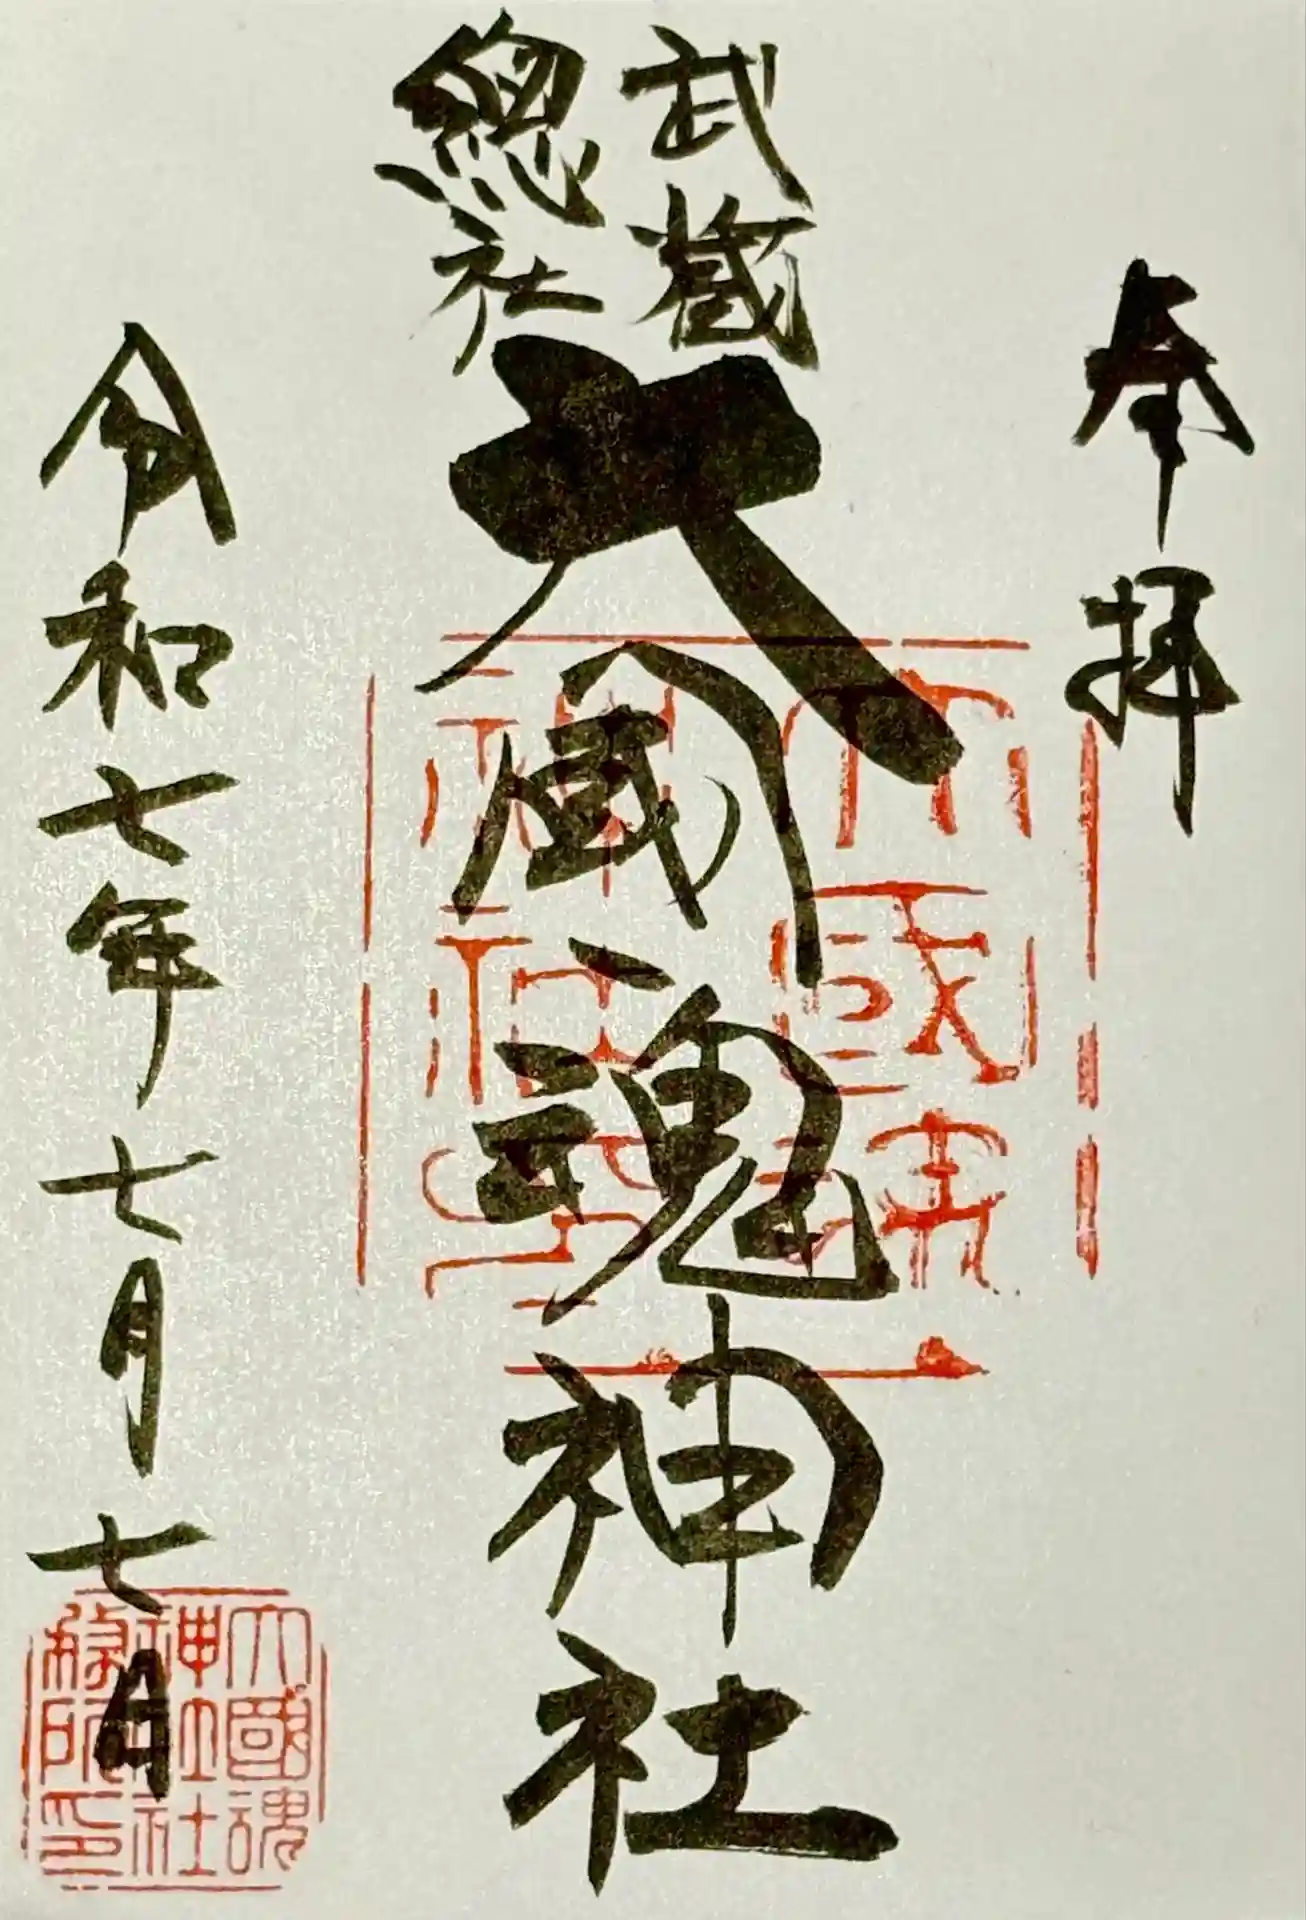 奉拝
武蔵
總社
大國魂神社
令和七年七月七日
大國魂
神社
務所印